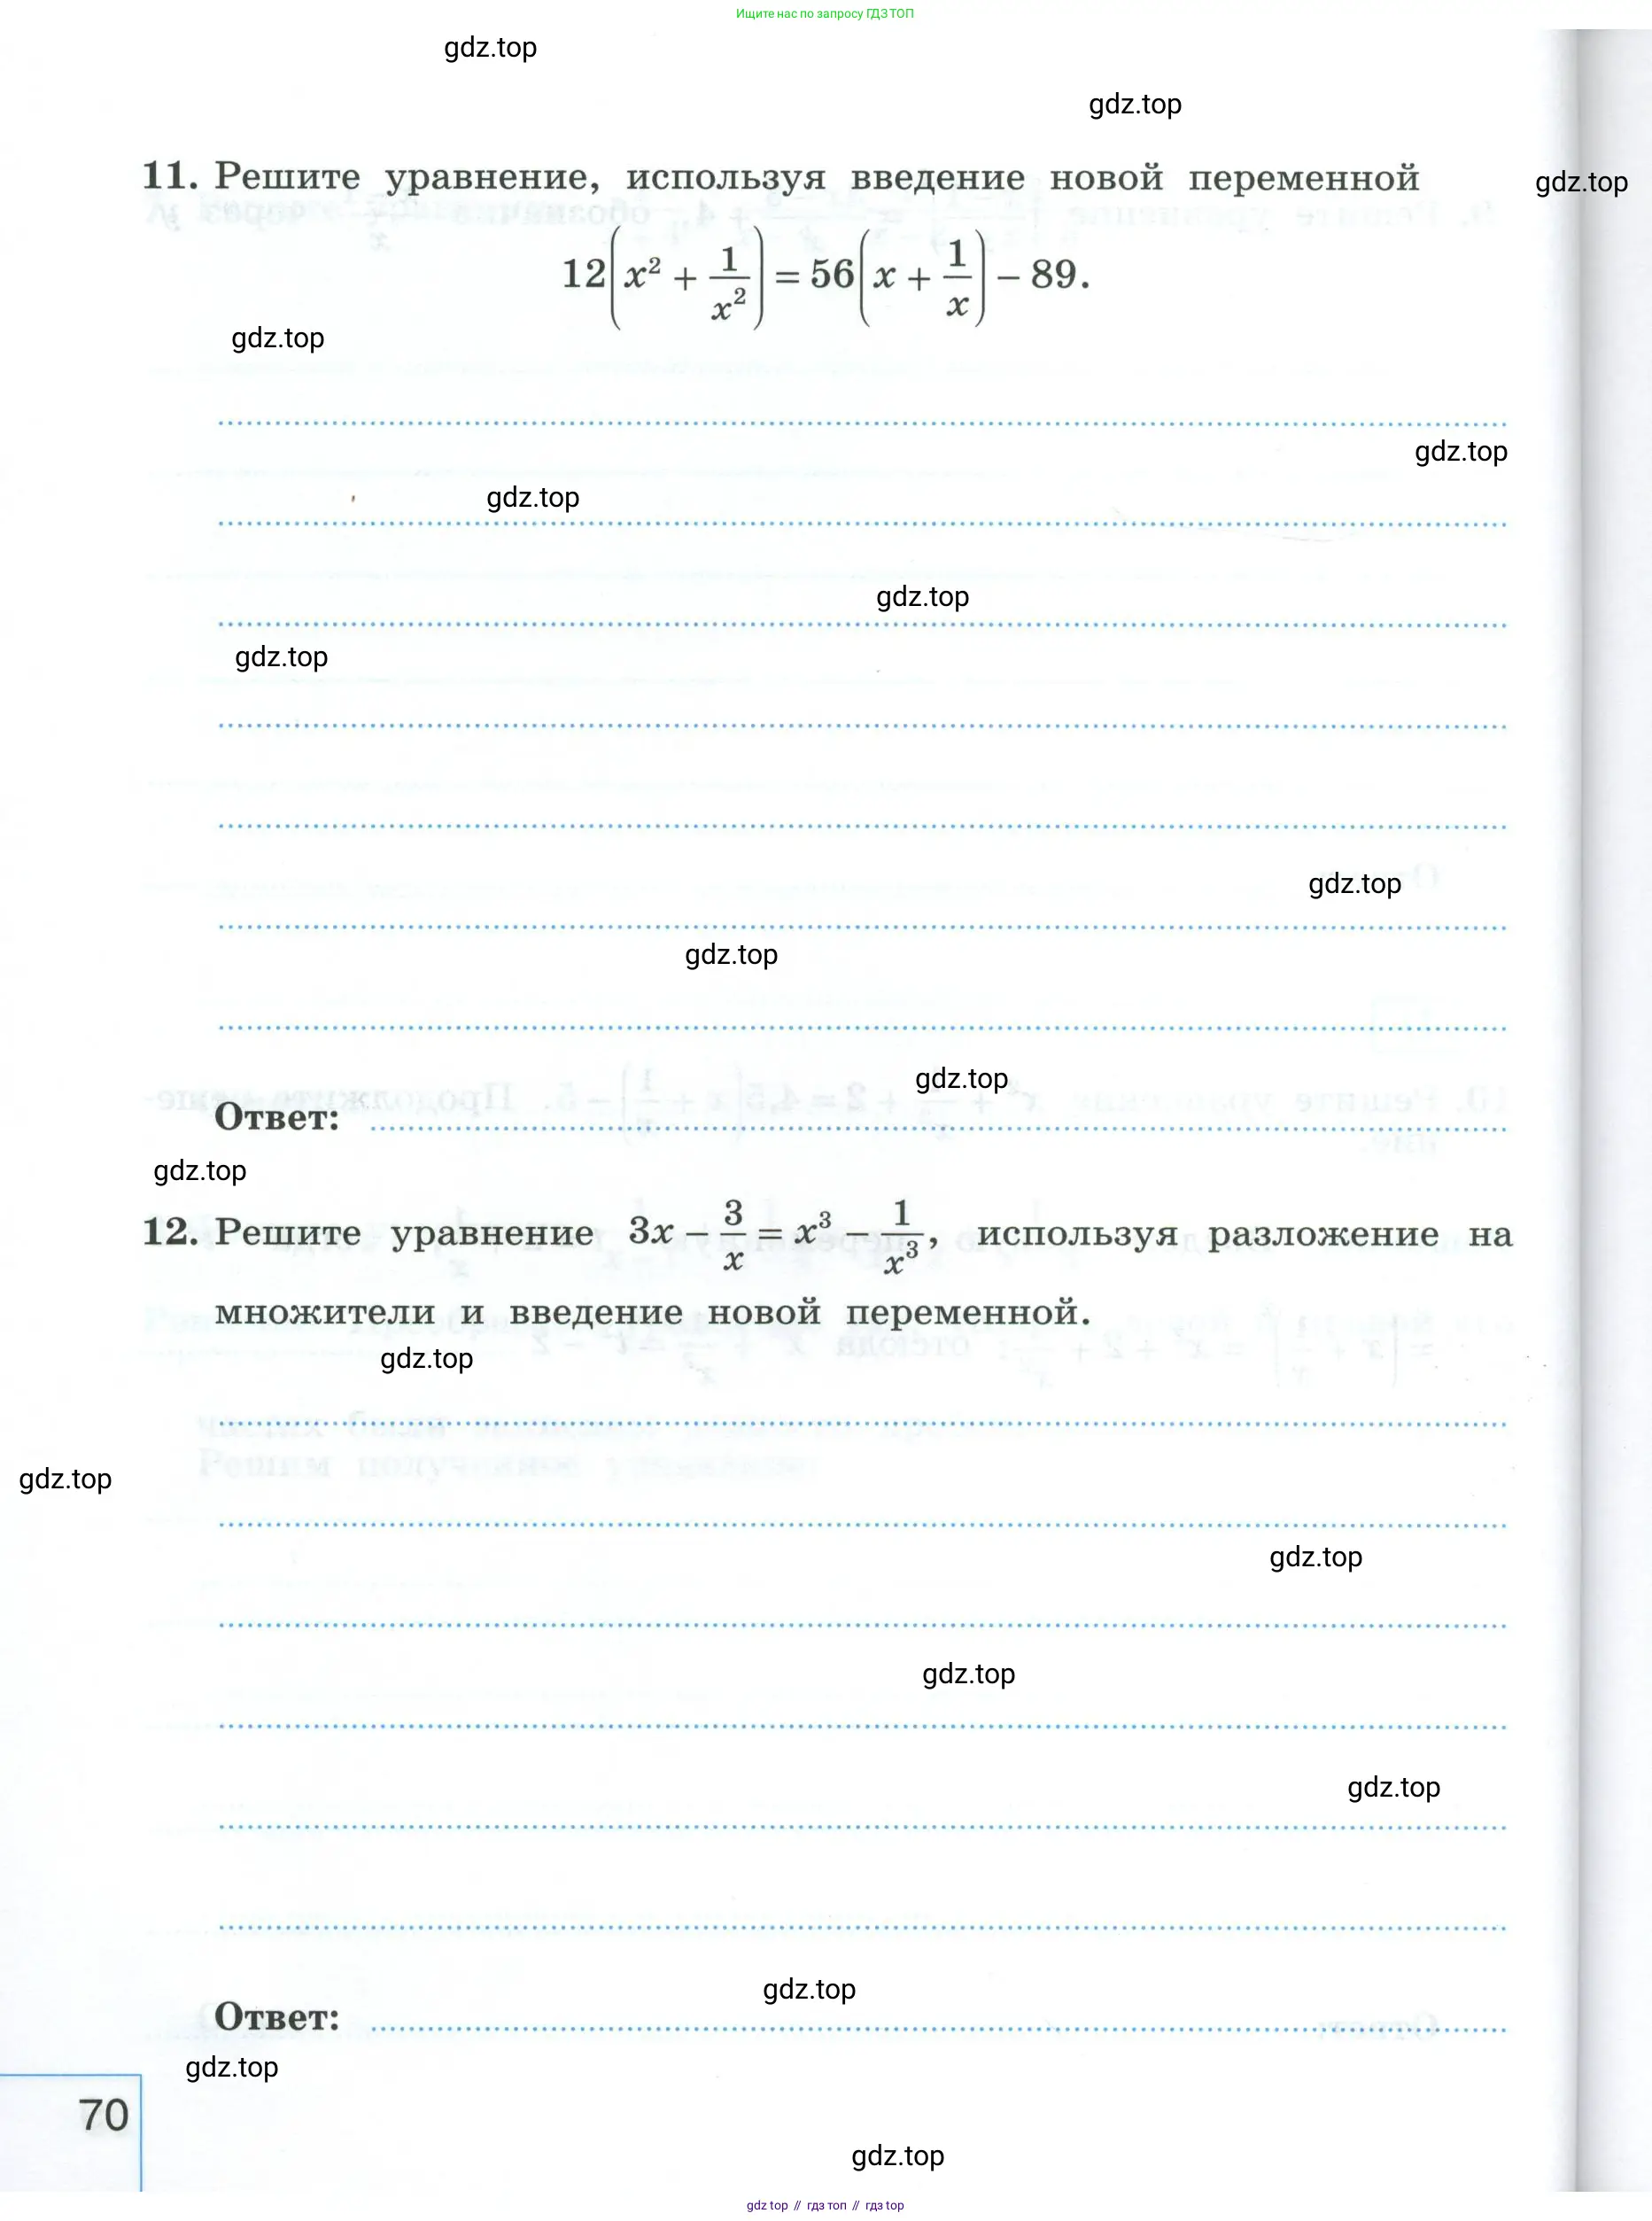 Ищите нас по запросу ГДЗ ТОП
gdz.top
gdz.top
11. Решите уравнение, используя введение новой переменной
gdz.top
12(x² + 1/x²) = 56(x + 1/x) − 89.
gdz.top
gdz.top
gdz.top
gdz.top
gdz.top
gdz.top
gdz.top
gdz.top
Ответ:
gdz.top
12. Решите уравнение 3x − 3/x = x³ − 1/x³, используя разложение на
множители и введение новой переменной.
gdz.top
gdz.top
gdz.top
gdz.top
gdz.top
gdz.top
Ответ:
gdz.top
70
gdz.top
gdz top // гдз топ // гдз top